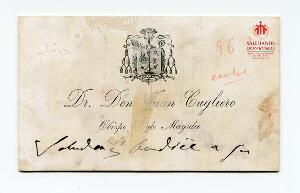 96
SALESIANOS
DON BOSCO
Dr. Don Juan Cagliero
Obispo de Magida
Saluda y bendice a